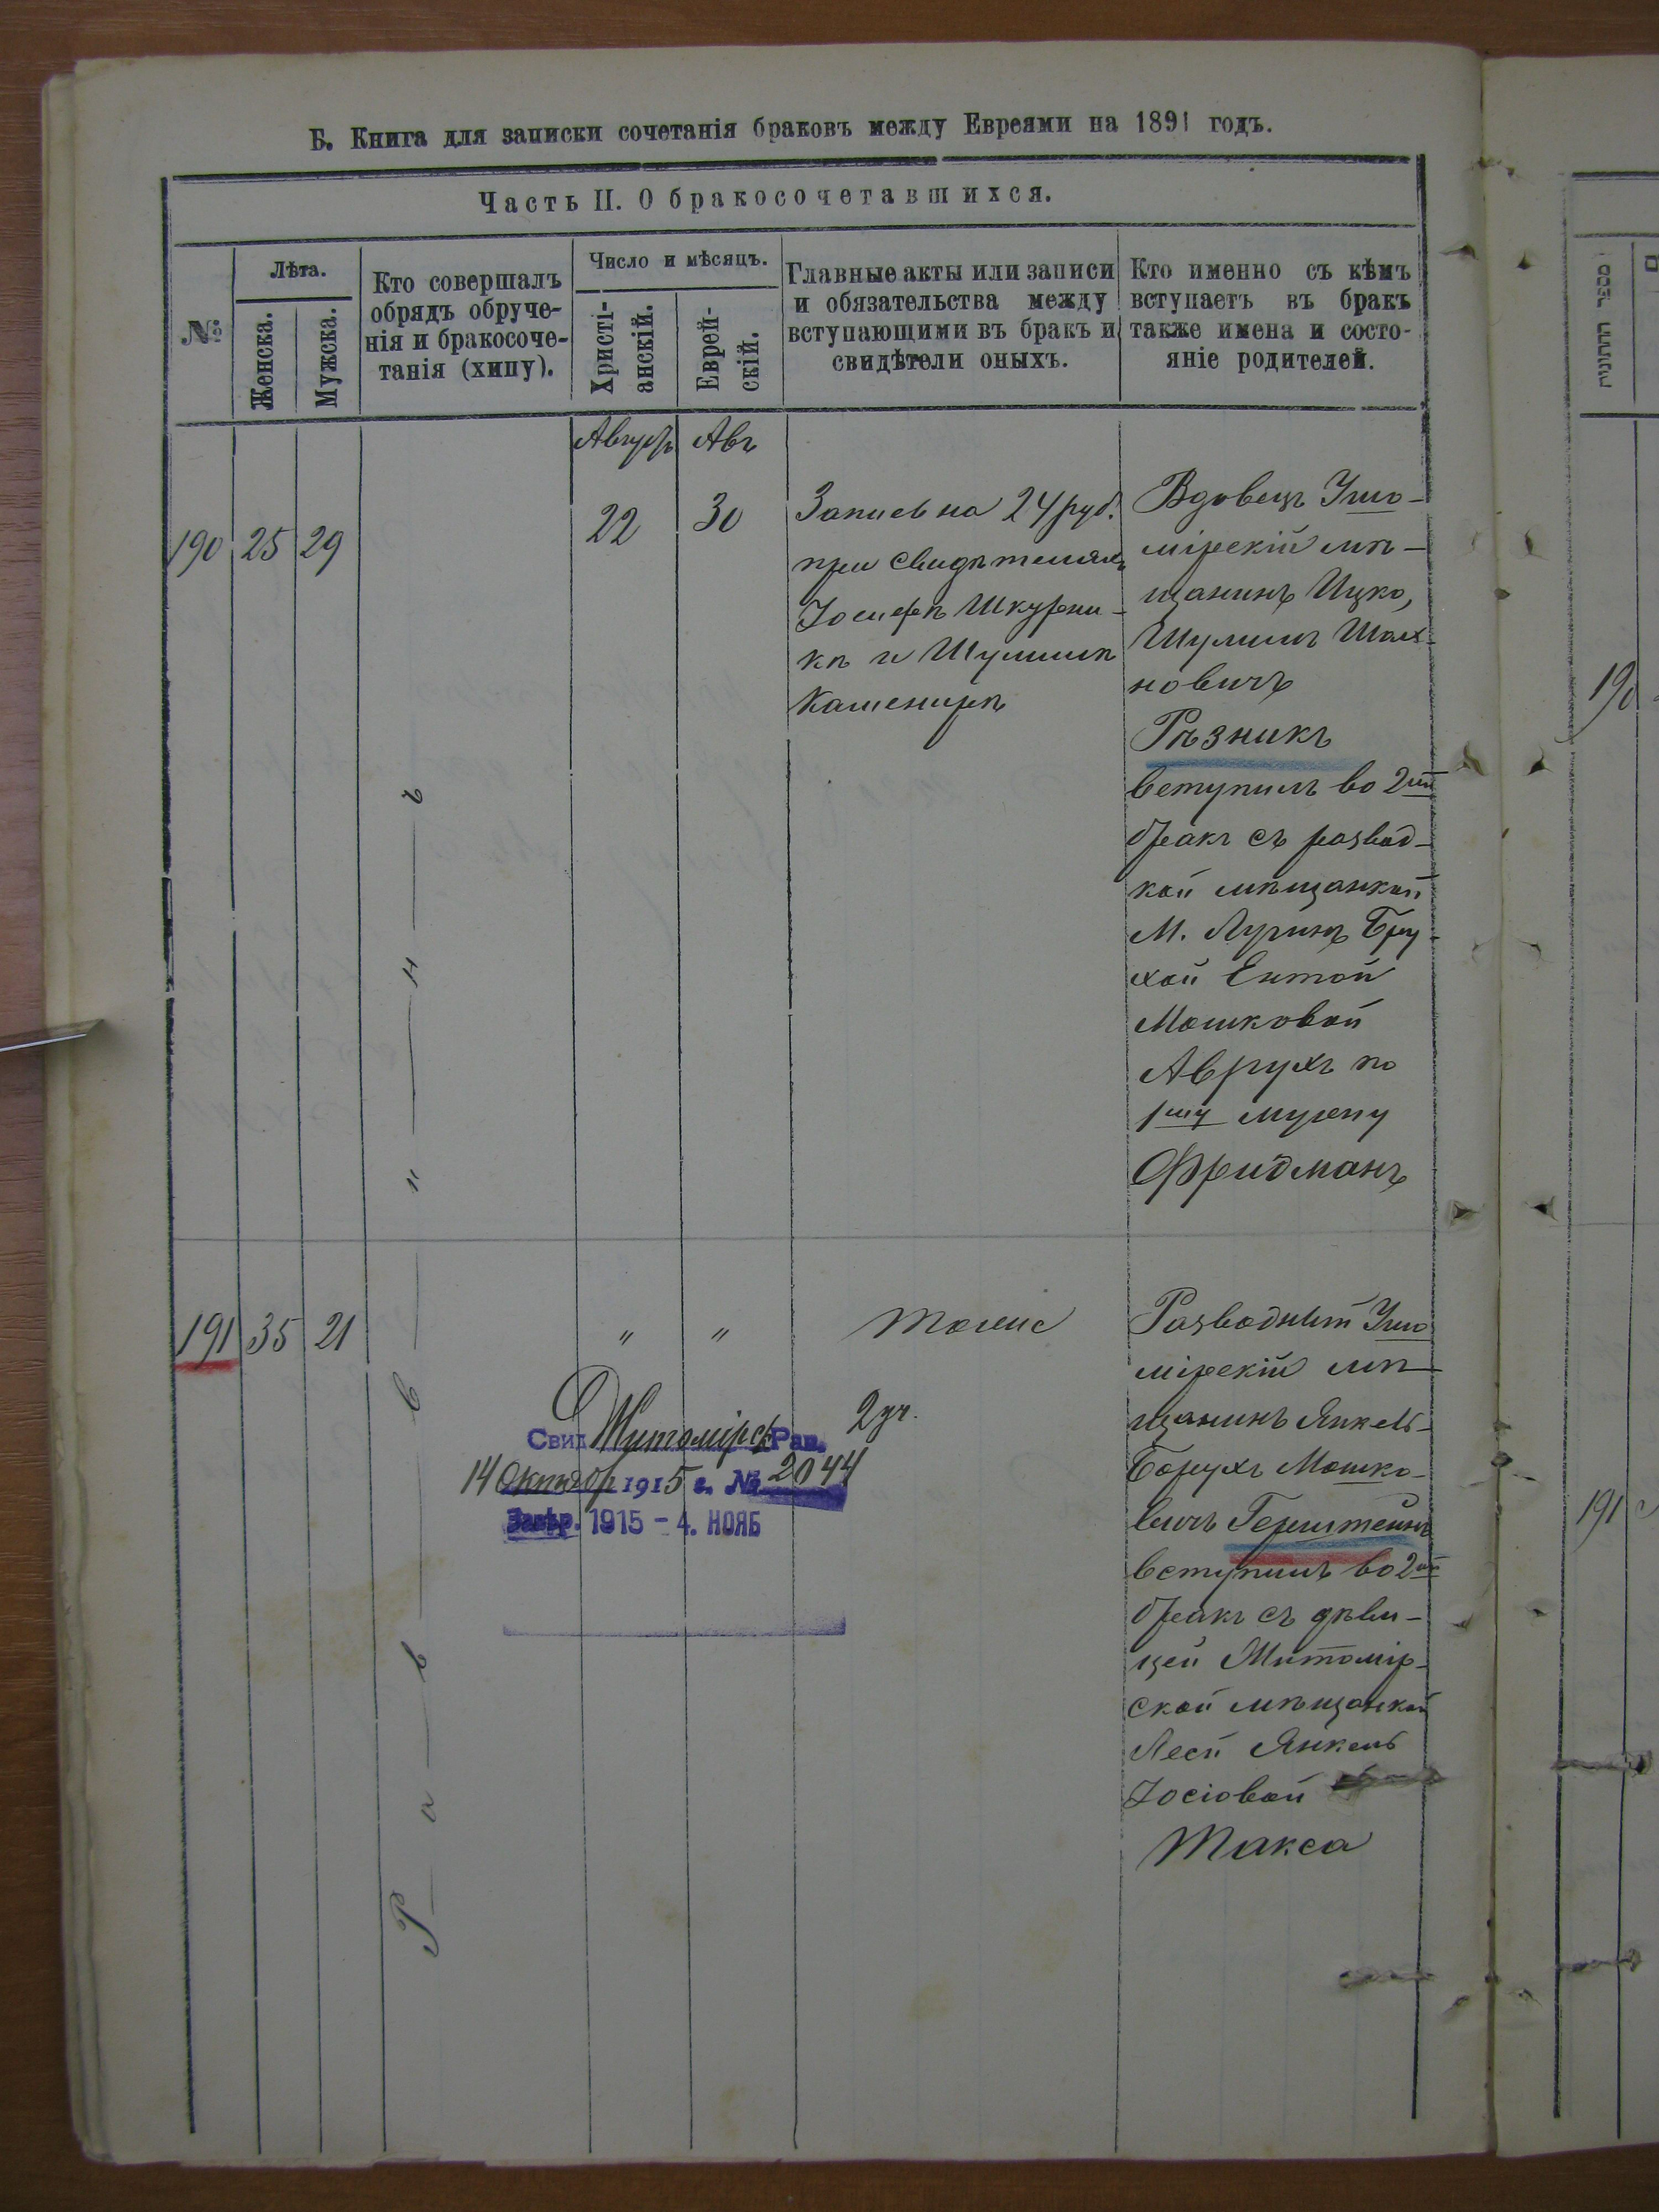 Б. Книга для записки сочетанія браковъ между Евреями на 1891 годъ.
Часть II. О бракосочетавшихся.
№
Лѣта.
Женска.
Мужска.
Кто совершалъ
обрядъ обруче-
нія и бракосоче-
танія (хипу).
Число и мѣсяцъ.
Христі-
анскій.
Еврей-
скій.
Главные акты или записи
и обязательства между
вступающими въ бракъ и
свидѣтели оныхъ.
Кто именно съ кѣмъ
вступаетъ въ бракъ
также имена и состо-
яніе родителей.
Августъ Авъ
190 25 29
22 30
Запись на 24 руб.
при свидѣтеляхъ
Іосифѣ Шкурни-
кѣ и Шулимѣ
Каменирѣ
Вдовецъ Ушо-
мірскій мѣ-
щанинъ Ицко,
Шулимъ Шах-
новичъ
Рѣзникъ
вступилъ во 2ый
бракъ съ развод-
кой мѣщанкой
М. Лугинъ Бру-
хой Ентой
Мошковой
Аврухъ по
1му мужу
Фридманъ
Раввинъ
191 35 21
" "
Тоже
Разводный Ушо
мірскій мѣ-
щанинъ Янкель-
Борухъ Мошко-
вичъ Герштейнъ
вступилъ во 2ой
бракъ съ дѣви-
цей Житомір-
ской мѣщанкой
Леей Янкель
Іосіовой
Такса
Свид Житомірск Рав. 2 уч.
14 Октябр 1915 г. № 2044
Завѣр. 1915 - 4. НОЯБ
מספר החתונות
190
191